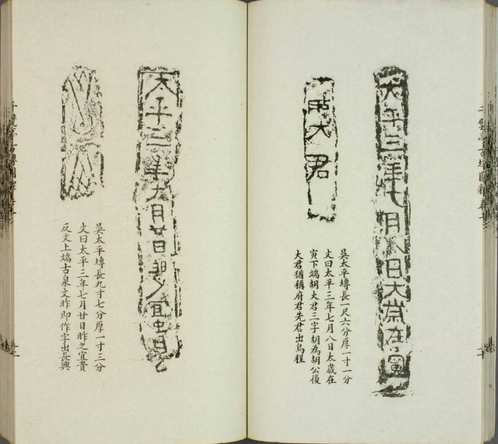 太平三年七月八日太歲在寅
胡大君
吳太平塼長一尺六分厚一寸一分
文曰太平三年七月八日太歲在
寅下端胡大君三字胡為胡公後
大君猶稱府君先君出烏程
太平三年七月廿日宜
吳太平塼長九寸七分厚一寸三分
文曰太平三年七月廿日昨之宜貴
反文上端古泉文昨即作字出長興